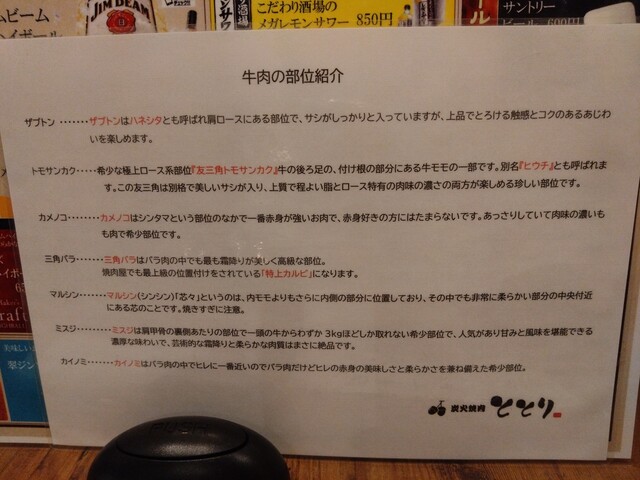 ムビーム
イボール
JIM BEAM
こだわり酒場の
メガレモンサワー 850円
サントリー
ビール 600円
牛肉の部位紹介
ザブトン ‥‥‥‥ザブトンはハネシタとも呼ばれ肩ロースにある部位で、サシがしっかりと入っていますが、上品でとろける触感とコクのあるあじわ
いを楽しめます。
トモサンカク‥‥‥希少な極上ロース系部位『友三角トモサンカク』牛の後ろ足の、付け根の部分にある牛モモの一部です。別名『ヒウチ』とも呼ばれま
す。この友三角は別格で美しいサシが入り、上質で程よい脂とロース特有の肉味の濃さの両方が楽しめる珍しい部位です。
カメノコ‥‥‥カメノコはシンタマという部位のなかで一番赤身が強いお肉で、赤身好きの方にはたまらないです。あっさりしていて肉味の濃いも
も肉で希少部位です。
三角バラ‥‥‥三角バラはバラ肉の中でも最も霜降りが美しく高級な部位。
焼肉屋でも最上級の位置付けをされている「特上カルビ」になります。
マルシン‥‥‥マルシン(シンシン)「芯々」というのは、内モモよりもさらに内側の部分に位置しており、その中でも非常に柔らかい部分の中央付近
にある芯のことです。焼きすぎに注意。
ミスジ‥‥‥‥ミスジは肩甲骨の裏側あたりの部位で一頭の牛からわずか3kgほどしか取れない希少部位で、人気があり甘みと風味を堪能できる
濃厚な味わいで、芸術的な霜降りと柔らかな肉質はまさに絶品です。
カイノミ‥‥‥‥カイノミはバラ肉の中でヒレに一番近いのでバラ肉だけどヒレの赤身の美味しさと柔らかさを兼ね備えた希少部位。
炭火焼肉 ととり